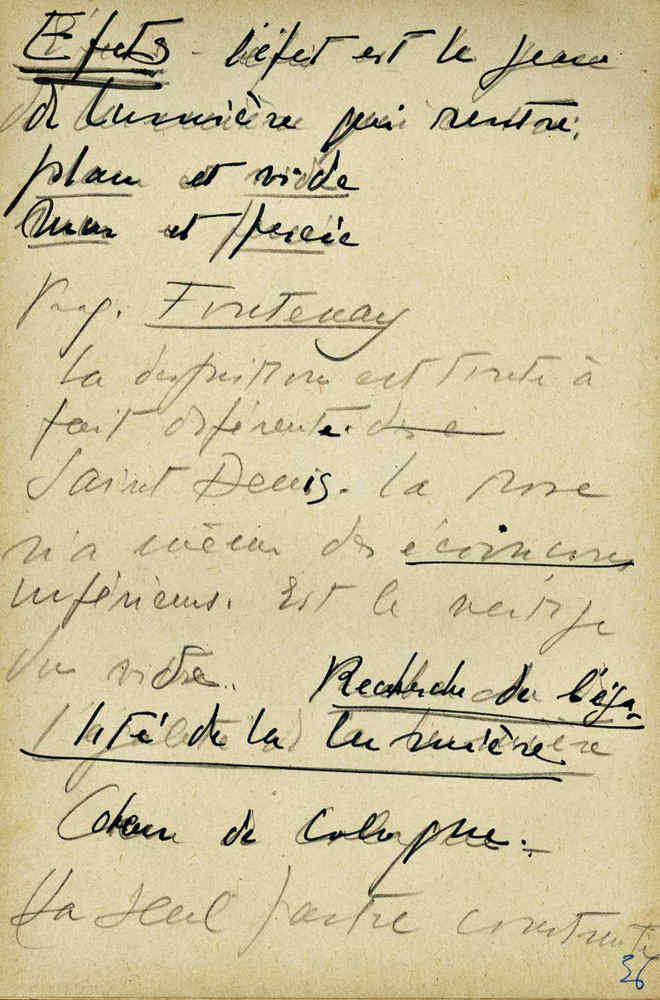 Effets - l'effet est le jeu
de lumière qui rentre.
plein et vide
mur et percée
Fontenay
La disposition est toute à
fait différente des
Saint Denis. La rose
n'a même des écoinçons
inférieurs. Est le vertige
du vide. Recherche de l'éga-
lité de la lumière
Chœur de Cologne.
La seul partie construite
36